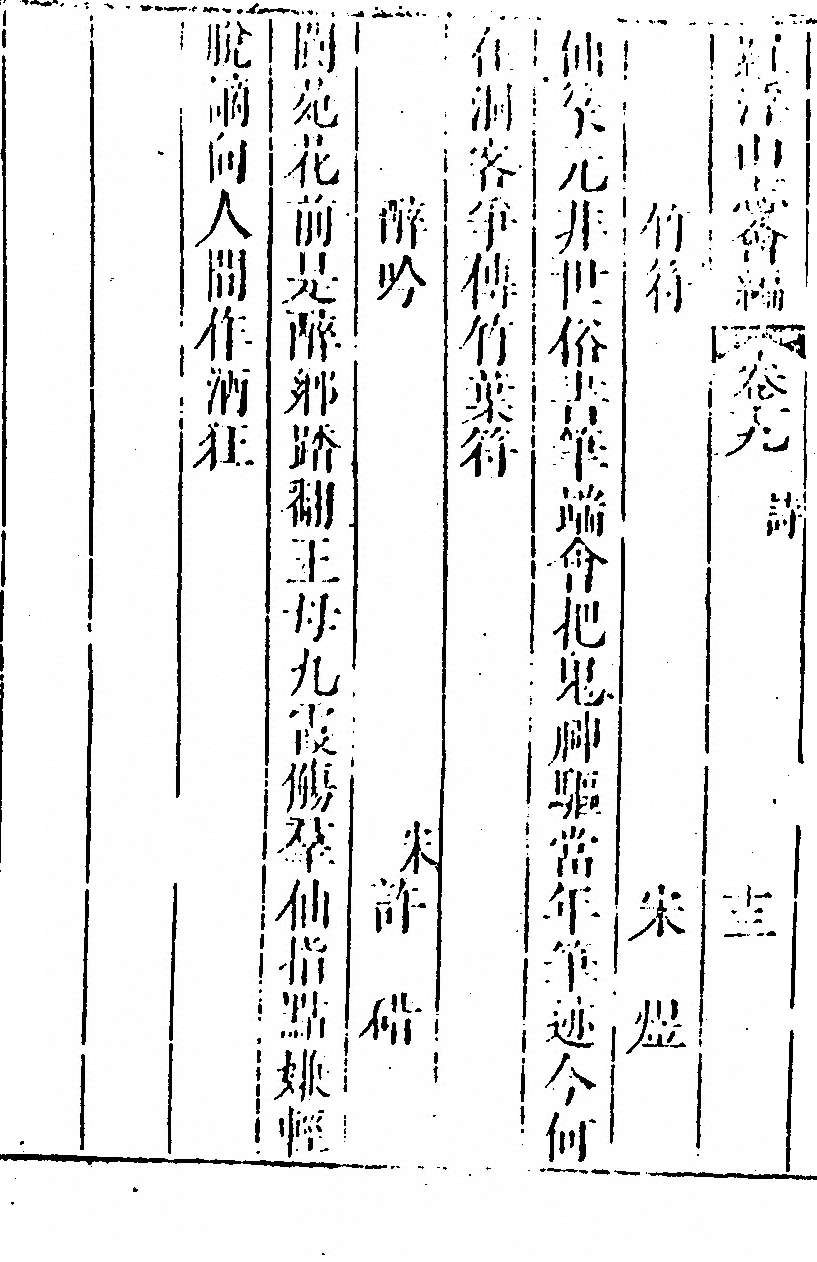 羅浮山志會編 卷九 詩 十三
竹符 宋 煜
仙篆元非世俗書筆端會把鬼神驅當年筆迹今何
在洞客爭傳竹葉符
醉吟 宋 許碏
閬苑花前是醉鄉踏翻王母九霞觴羣仙指點嫌輕
脫謫向人間作酒狂